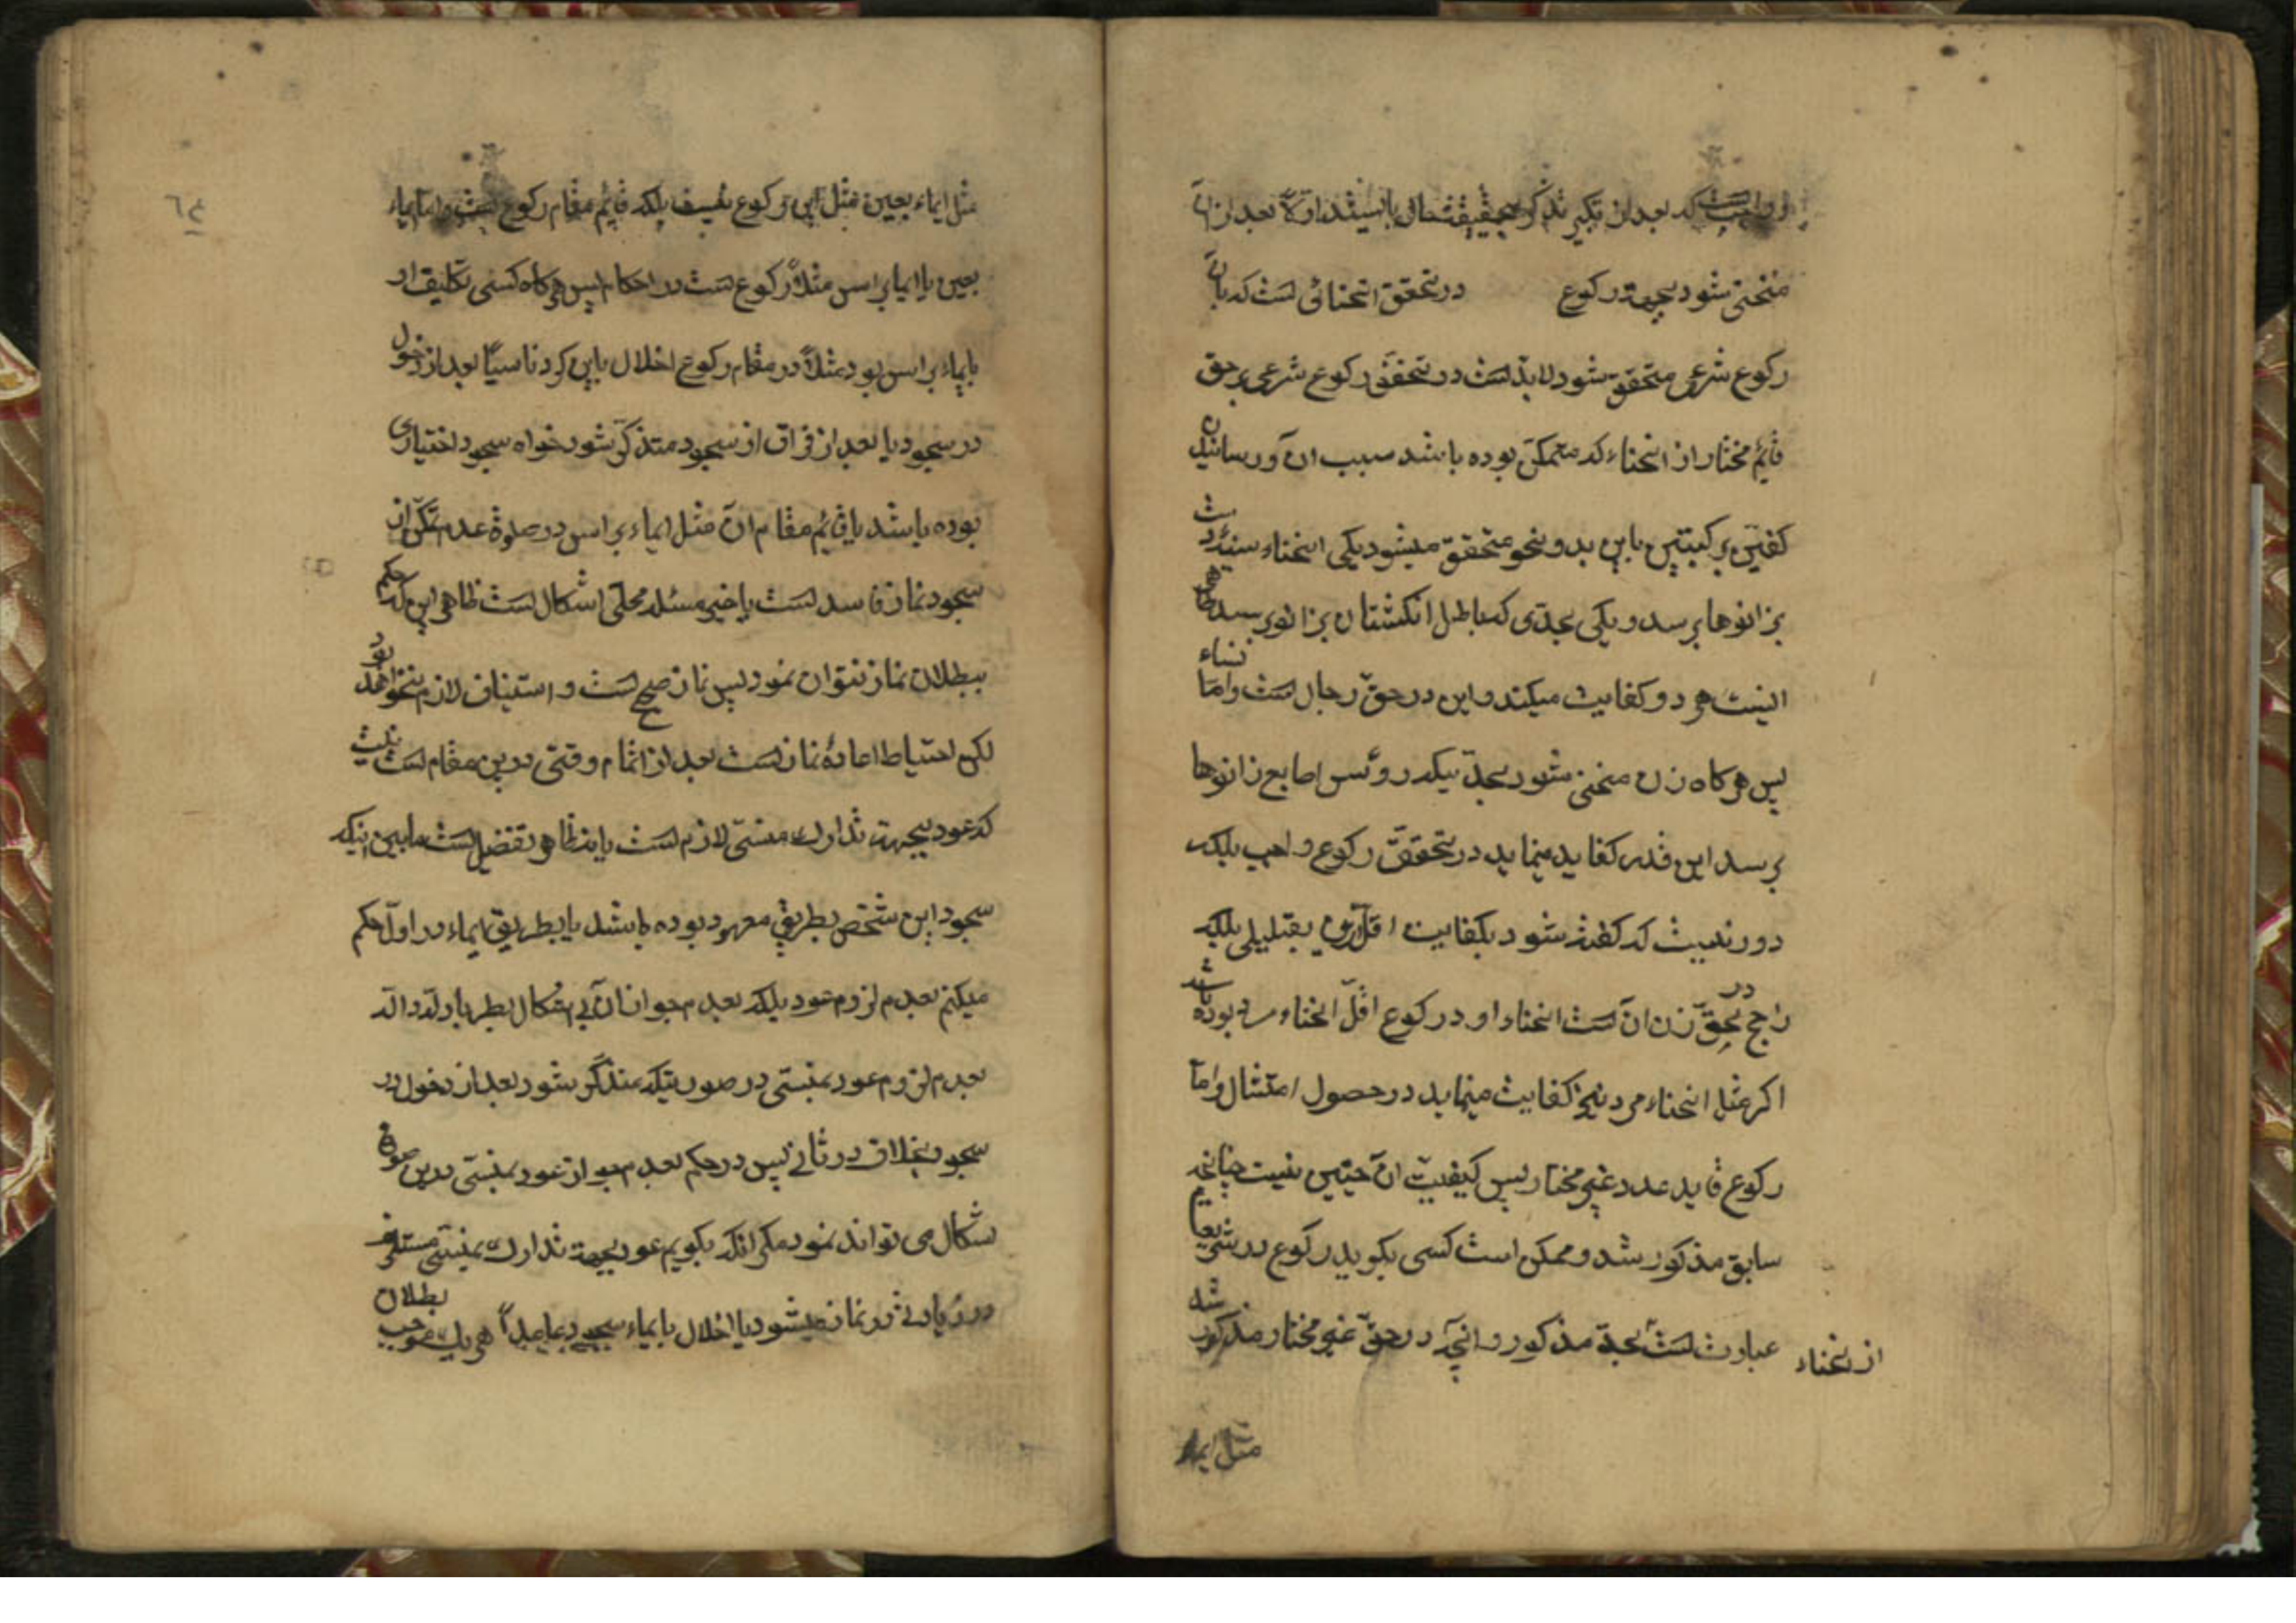 که بعد از تکبیر بایستد اولا بعد از آن
منحنی شود بجهة رکوع در تحقق انحنائی است که بآن
رکوع شرعی متحقق شود لابد است در تحقق رکوع شرعی بر حق
قائم مختار از انحناء که متمکن بوده باشد سبب ان آورسانیدن
کفین بر کبتین باین بدو نحو متحقق میشود یکی انحناء
بزانوها برسد و یکی بحدی که باطل انکشتان بزانو برسد
اینست هر دو کفایت میکند و این در حق رجال است و اما نساء
پس هرکاه زن منحنی شود بحدیکه روئس اصابع زانوها
برسد این قدر کفاید مینماید در تحقق رکوع واجب بلکه
دور نیست که کفته شود بکفایت اقل ازین بقلیلی بلکه
راجح در حق زن ان است انحناء او در رکوع اقل انحناء مرد بوده باشد
اکر مثل انحناء مرد نیز کفایت مینماید در حصول امتثال و اما
رکوع قاید عدد غیر مختار پس کیفیت ان چنین نیست چنانچه
سابق مذکور شد و ممکن است کسی بکوید رکوع در شریعة
از انحناء عبارت است بحد مذکور و انچه در حق غیر مختار مذکور شد
مثل ایماء
٦٤
مثل ایماء بعین مثل این رکوع نیست بلکه قائم مقام رکوع است و اما ایماء
بعین یا ایما براس مثلاً رکوع است در احکام پس هرکاه کسی تکلیف او
بایماء براس بود مثلاً در مقام رکوع اخلال باین کرد ناسیاً بعد از دخول
در سجود یا بعد از فراق از سجود متذکر شود خواه سجود اختیاری
بوده باشد یا قائم مقام ان مثل ایماء براس در صلوة عدم تمکن از
سجود نماز فاسد است یا خیر مسئله محلی اشکال است ظاهر این که حکم
ببطلان نماز نتوان نمود پس نماز صحیح است و استیناف لازم نخواهد بود
لکن احتیاط اعادهٔ نماز است بعد از اتمام وقتی درین مقام است
که عود بجهت تدارک منسی لازم است یا نه ظاهر تفضیل است مابین اینکه
سجود این شخص بطریق معهود بوده باشد یا بطریق ایماء در اول حکم
میکنم بعدم لزوم عود بلکه بعدم جواز ان بی اشکال بطریا وله واله
بعدم لزوم عود بمنسی در صورتیکه متذکر شود بعد از دخول در
سجود بخلاف در ثانی پس در حکم بعدم جواز عود بمنسی درین صورة
اشکال می تواند نمود مکر انکه بکویم عود بجهة تدارک منسی مستلزم
در زیادتی در نماز میشود یا اخلال بایماء سجود عامداً هر یک موجب بطلان